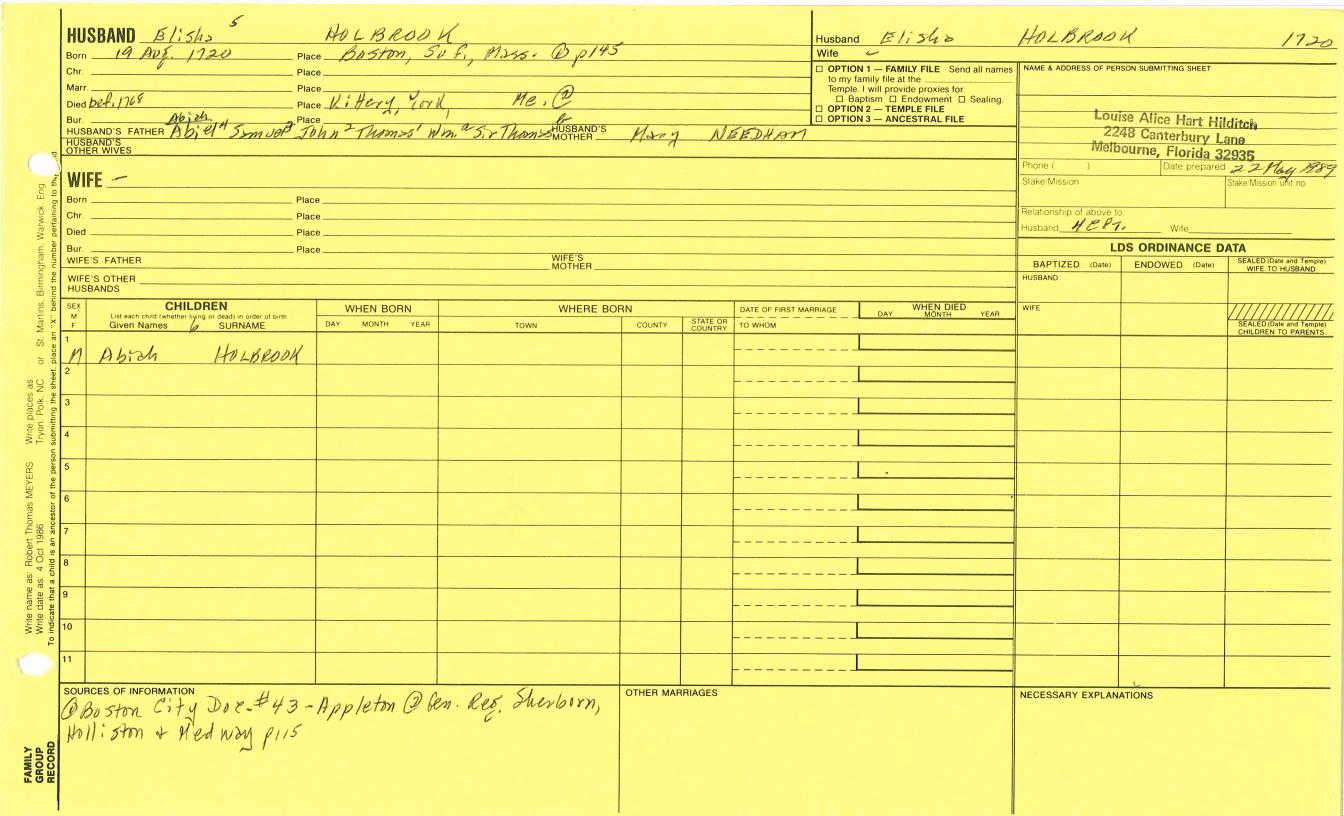 HUSBAND Elisha 5 HOLBROOK
Born 19 Aug. 1720 Place Boston, Suf., Mass. @ p145
Chr. Place
Marr. Place
Died bef. 1768 Place Kittery, York, Me. @
Bur. Place
Abiah
HUSBAND'S FATHER Abiel 4 Samuel 3 John 2 Thomas 1 Wm. Sir Thomas HUSBAND'S MOTHER Mary NEEDHAM
HUSBAND'S OTHER WIVES
WIFE —
Born Place
Chr. Place
Died Place
Bur. Place
WIFE'S FATHER WIFE'S MOTHER
WIFE'S OTHER HUSBANDS
Husband Elisha HOLBROOK 1720
Wife
OPTION 1 — FAMILY FILE Send all names
to my family file at the
Temple. I will provide proxies for
Baptism Endowment Sealing.
OPTION 2 — TEMPLE FILE
OPTION 3 — ANCESTRAL FILE
NAME & ADDRESS OF PERSON SUBMITTING SHEET
Louise Alice Hart Hilditch
2248 Canterbury Lane
Melbourne, Florida 32935
Phone ( ) Date prepared 22 May 1989
Stake/Mission Stake/Mission unit no.
Relationship of above to:
Husband Wife
LDS ORDINANCE DATA
BAPTIZED (Date) ENDOWED (Date) SEALED (Date and Temple) WIFE TO HUSBAND
HUSBAND
WIFE
SEALED (Date and Temple) CHILDREN TO PARENTS
SEX M F
CHILDREN
List each child (whether living or dead) in order of birth
Given Names 6 SURNAME
WHEN BORN
DAY MONTH YEAR
WHERE BORN
TOWN COUNTY STATE OR COUNTRY
DATE OF FIRST MARRIAGE
TO WHOM
WHEN DIED
DAY MONTH YEAR
1
M Abiah HOLBROOK
2
3
4
5
6
7
8
9
10
11
SOURCES OF INFORMATION
@Boston City Doc. #43 - Appleton @ Gen. Reg. Sherborn,
Holliston & Medway p115
OTHER MARRIAGES
NECESSARY EXPLANATIONS
Write name as: Robert Thomas MEYERS Write places as: Tryon, Polk, NC or St. Martins, Birmingham, Warwick, Eng.
Write date as: 4 Oct 1986
To indicate that a child is an ancestor of the person submitting the sheet, place an "X" behind the number pertaining to
FAMILY
GROUP
RECORD